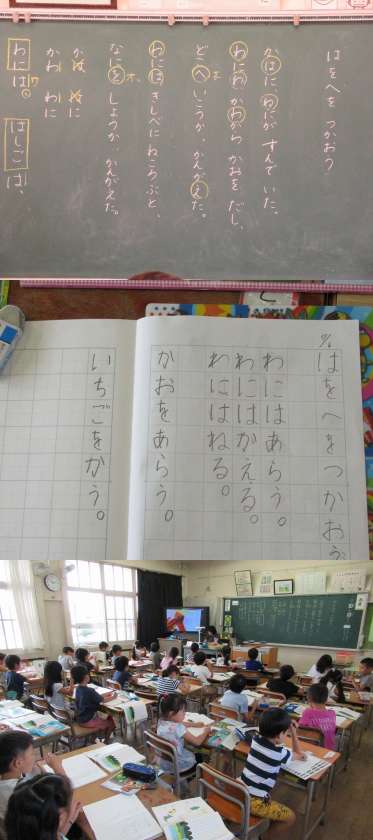 はをへを つかおう
かはに、わにが すんで いた。
わにわ かわから かおを だし、
どこへ いこうか、かんがえた。
わには きしべに ねころぶと、
なにを しようか、かんがえた。
オ、
かは はに
かわ わに
わには。
ワ
はしごは、
はをへをつかおう
わにはあらう。
わにはかえる。
わにはねる。
かおをあらう。
いちごをかう。